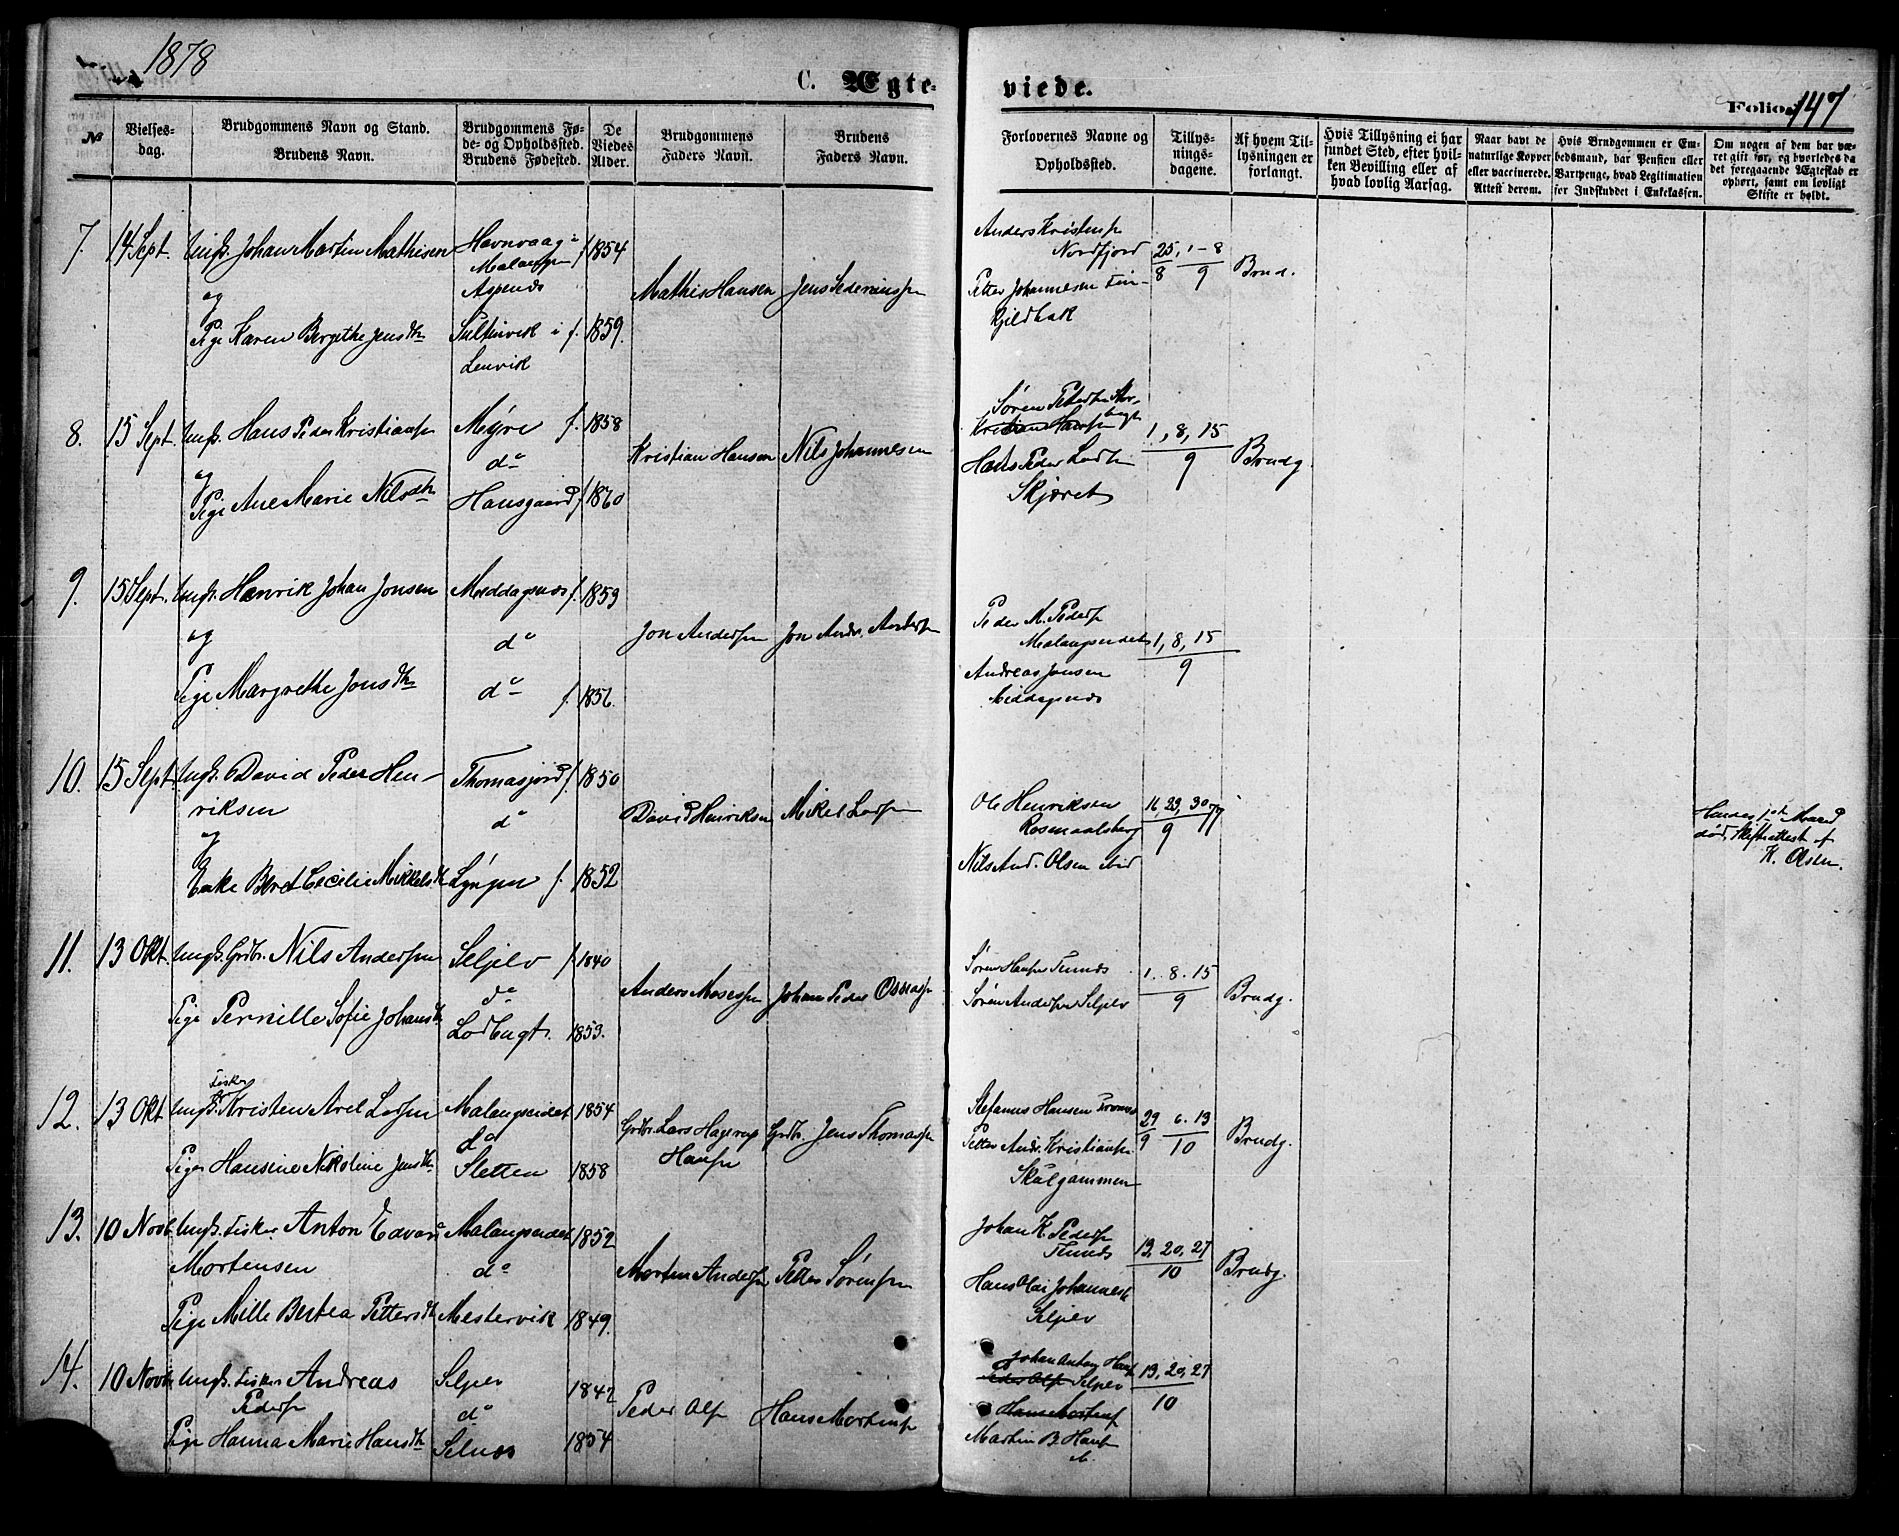 1878
C. Ægte-
viede.
Folio 147
No
Vielses-
dag.
Brudgommens Navn og Stand.
Brudens Navn.
Brudgommens Fø-
de- og Opholdssted.
Brudens Fødested.
De
Viedes
Alder.
Brudgommens
Faders Navn.
Brudens
Faders Navn.
Forlovernes Navne og
Opholdssted.
Tillys-
nings-
dagene.
Af hvem Til-
lysningen er
forlangt.
Hvis Tillysning ei har
fundet Sted, efter hvil-
ken Bevilling eller af
hvad lovlig Aarsag.
Naar havt de
naturlige Kopper
eller vaccinerede.
Attest derom.
Hvis Brudgommen er Em-
bedsmand, har Pension eller
Vartpenge, hvad Legitimation
for Indskuddet i Enkekassen.
Om nogen af dem har væ-
ret gift før, og hvorledes da
det foregaaende Ægteskab er
ophørt, samt om lovligt
Skifte er holdt.
7. 14 Sept. Ungk. Johan Martin Mathisen
og
Pige Karen Bergithe Jensdtr
Havnvaag i
Malangen f.
Aspenes
i f.
Lenvik
1854
1859.
Mathis Hansen
Anders Kristensen
Nordfjord
Petter Johannesen
Kjeldbak
25, 1 - 8
8 9
Brud.
8. 15 Sept. Ungk. Hans Peder Kristiansen
og
Pige Ane Marie Nilsdtr
Myre f.
do
Hansgaard f.
1858
1860
Kristian Hansen
Nils Johannesen
Søren Petersen
Kristian Hansen
Hans Peder
Skjæret
1, 8, 15
9
Brudg
9. 15 Sept. Ungk. Henrik Johan Jonsen
og
Pige Margrethe Jonsdtr
Middagsnes f.
do
do f.
1853
1856.
Jon Andersen
Jon Andr. Andersen
Peder M. Pedersen
Malangseidet
Andreas Jonsen
Middagsnes
1, 8, 15
9
10. 15 Sept. Ungk. David Peder Hen-
riksen
og
Enke Beret Cecilie Mikkelsdtr
Thomasjord f.
do
Lyngen f.
1850
1852
David Henriksen
Mikel Larsen
Ole Henriksen
Rosmaalsberg
Nils And. Olsen ibid
9
Hendes 1ste Mand
død, Skifteattest af
K. Olsen.
11. 13 Okt. Ungk. Grdbr. Nils Andersen
Pige Pernille Sofie Johansdtr
Seljelv f.
do
1840
1853.
Anders Mosesen
Johan Peder
Søren Hansen
Søren Andersen Seljelv
1. 8. 15
9
Brudg.
12. 13 Okt. Ungk. Fisker Kristen Arel Larsen
Pige Hansine Nikoline Jensdtr
Malangseidet
do
Sletten
1854
1858
Grdbr. Lars Hagerup
Hansen
Grdbr. Jens Thomassen
Stefanus Hansen
Petter Andr. Kristiansen
Skulgammen
29 6. 13
9 10
Brudg.
13. 10 Novb. Ungk. Fisker Anton Edvard
Mortensen
Pige Mille Bertea Pettersdtr
Malangseidet
do
Mestervik
1852
1849.
Morten Andersen
Petter Sørensen
Johan K. Pedersen
Hans Olai Johannesen
Seljelv
13, 20, 27
10
Brudg.
14. 10 Novb. Ungk. Fisker Andreas
Pedersen
Pige Hanna Marie Hansdtr
Seljelv
do
Selnes
1847
1854
Peder Olsen
Hans Mortensen
Johan Anton Hansen
Peder Olsen Seljelv
Hans Mortensen
Martin B. Hansen
13, 20, 27
10